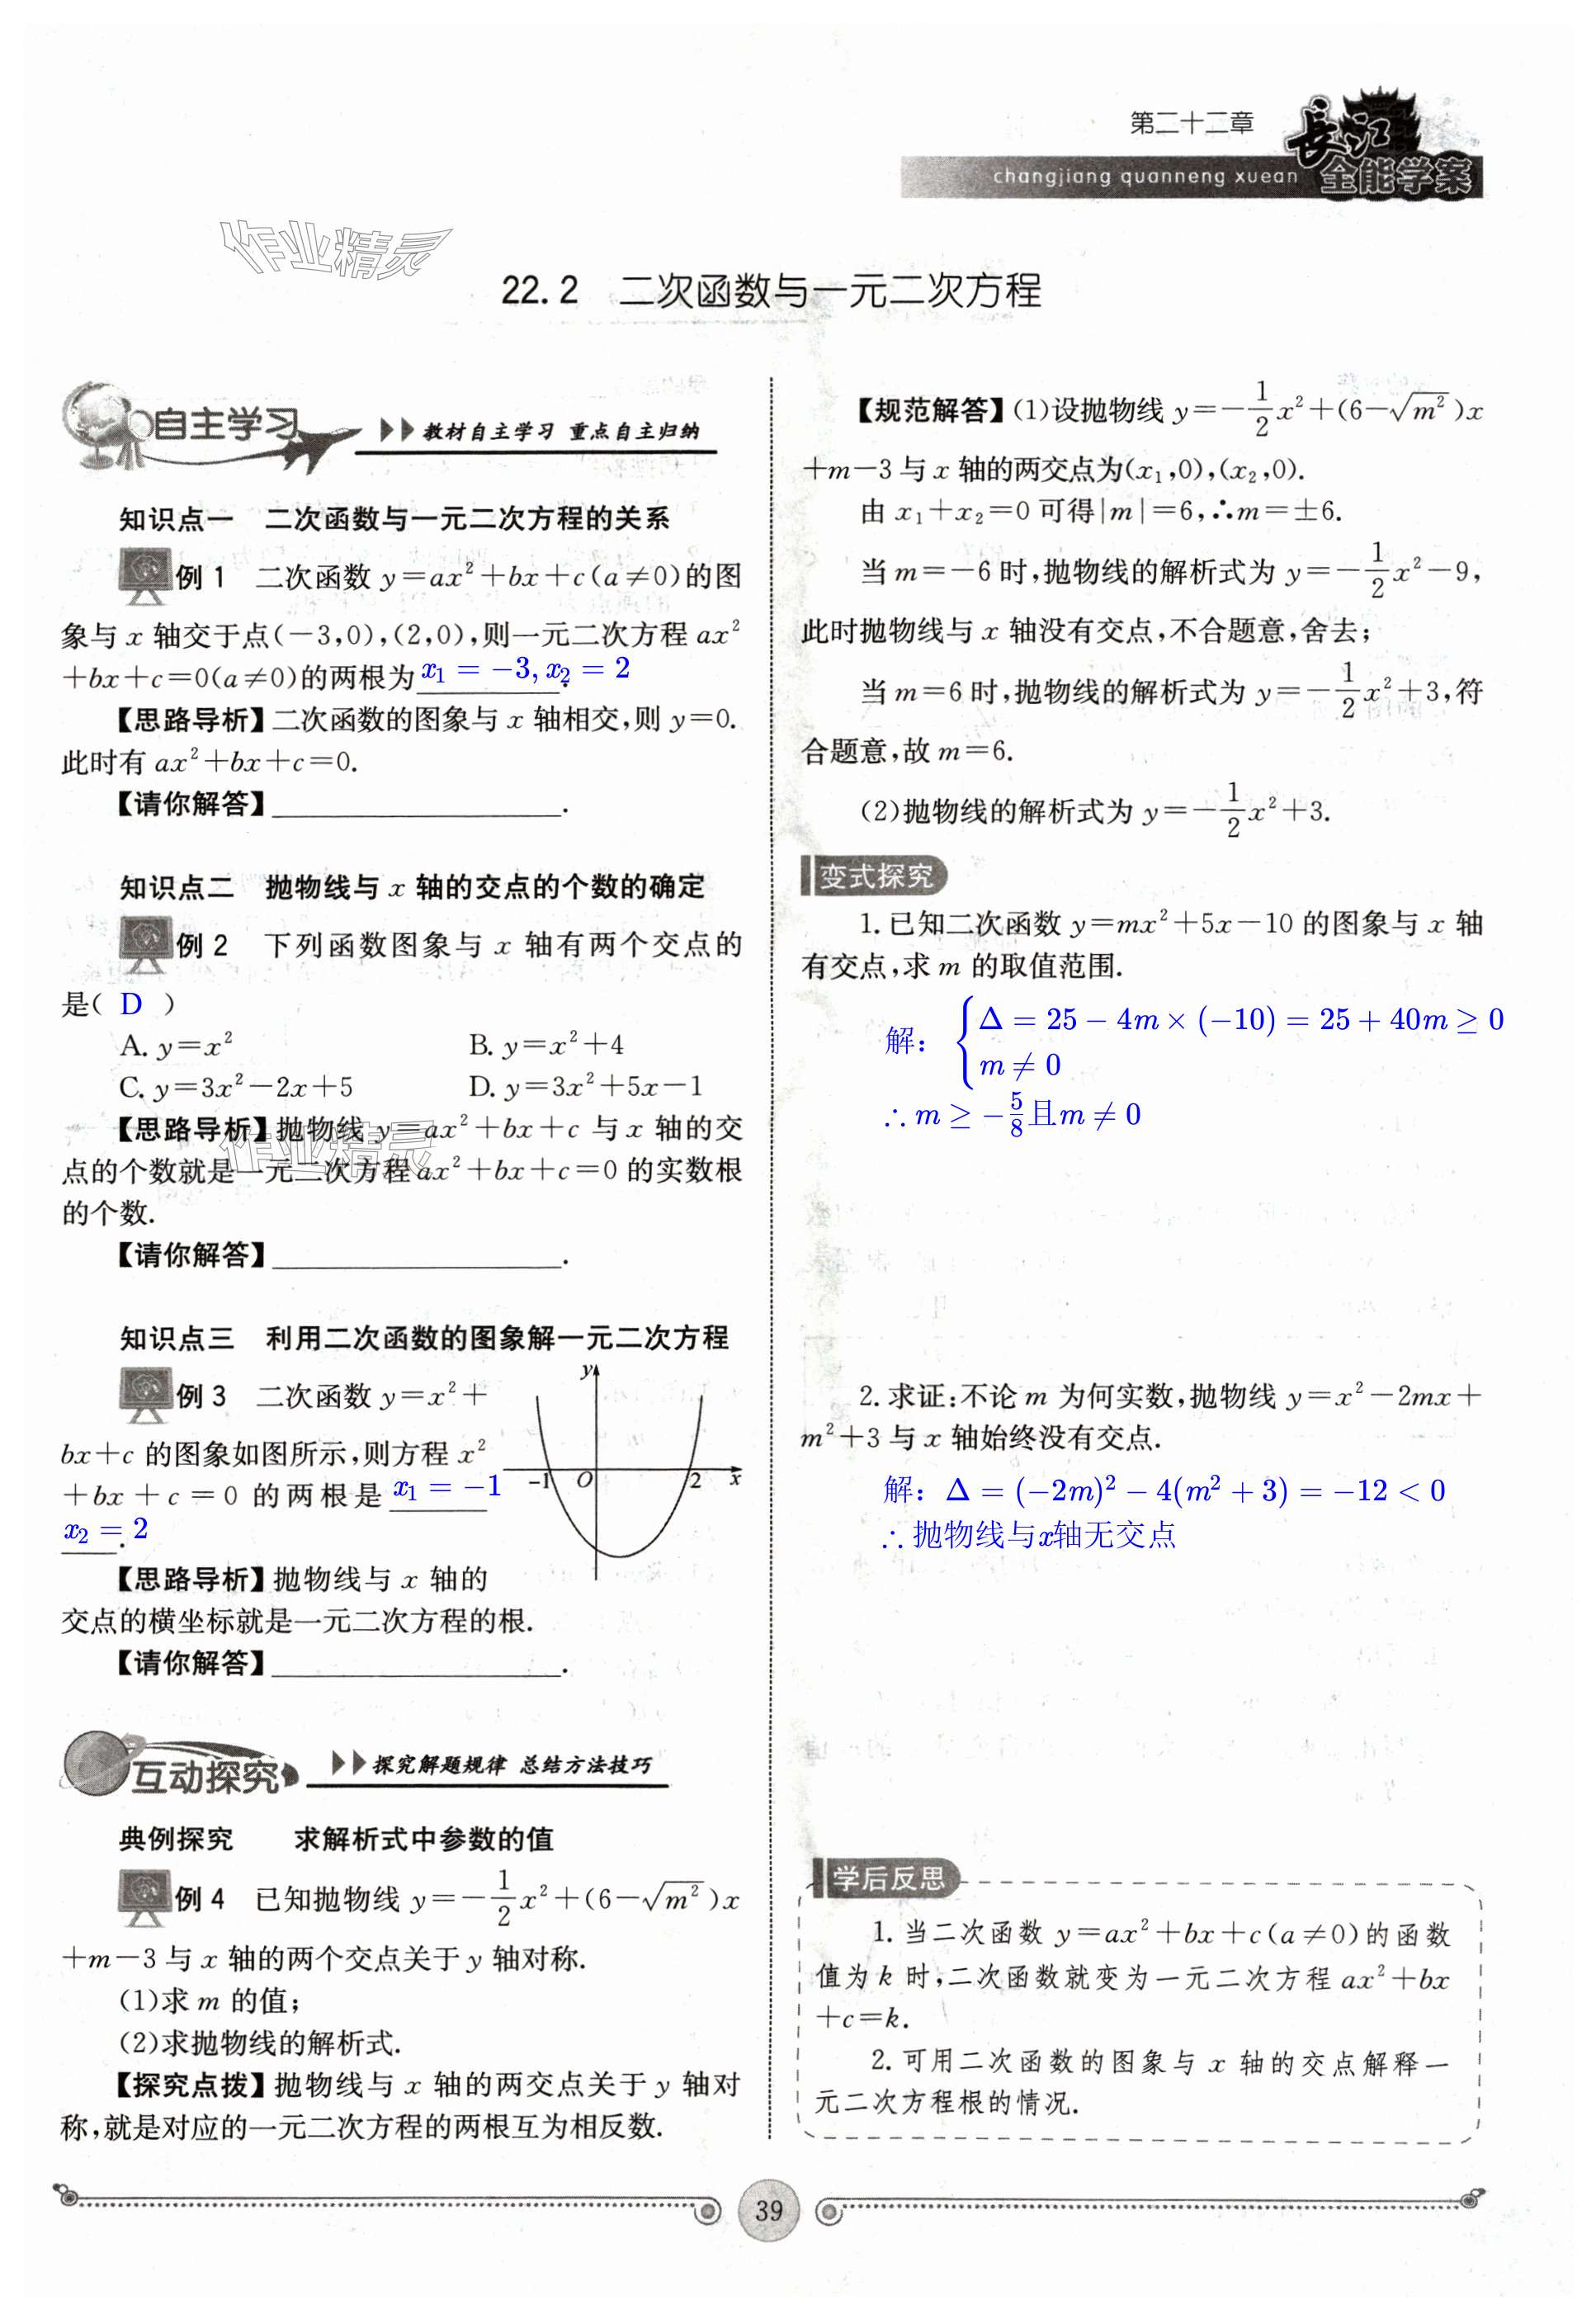 第二十二章
長江
全能学案
changjiang quanneng xuean
作业精灵
22.2 二次函数与一元二次方程
自主学习 教材自主学习 重点自主归纳
知识点一 二次函数与一元二次方程的关系
例1 二次函数 y=ax²+bx+c(a≠0)的图
象与 x 轴交于点(-3,0),(2,0),则一元二次方程 ax²
+bx+c=0(a≠0)的两根为 x₁=-3,x₂=2.
【思路导析】二次函数的图象与 x 轴相交,则 y=0.
此时有 ax²+bx+c=0.
【请你解答】____________.
知识点二 抛物线与 x 轴的交点的个数的确定
例2 下列函数图象与 x 轴有两个交点的
是( D )
A. y=x² B. y=x²+4
C. y=3x²-2x+5 D. y=3x²+5x-1
【思路导析】抛物线 y=ax²+bx+c 与 x 轴的交
点的个数就是一元二次方程 ax²+bx+c=0 的实数根
的个数.
作业精灵
【请你解答】____________.
知识点三 利用二次函数的图象解一元二次方程
例3 二次函数 y=x²+
bx+c 的图象如图所示,则方程 x²
+bx+c=0 的两根是 x₁=-1
x₂=2.
y
-1 O 2 x
【思路导析】抛物线与 x 轴的
交点的横坐标就是一元二次方程的根.
【请你解答】____________.
互动探究 探究解题规律 总结方法技巧
典例探究 求解析式中参数的值
例4 已知抛物线 y=-1/2x²+(6-√m²)x
+m-3 与 x 轴的两个交点关于 y 轴对称.
(1)求 m 的值;
(2)求抛物线的解析式.
【探究点拨】抛物线与 x 轴的两交点关于 y 轴对
称,就是对应的一元二次方程的两根互为相反数.
【规范解答】(1)设抛物线 y=-1/2x²+(6-√m²)x
+m-3 与 x 轴的两交点为(x₁,0),(x₂,0).
由 x₁+x₂=0 可得|m|=6,∴m=±6.
当 m=-6 时,抛物线的解析式为 y=-1/2x²-9,
此时抛物线与 x 轴没有交点,不合题意,舍去;
当 m=6 时,抛物线的解析式为 y=-1/2x²+3,符
合题意,故 m=6.
(2)抛物线的解析式为 y=-1/2x²+3.
变式探究
1.已知二次函数 y=mx²+5x-10 的图象与 x 轴
有交点,求 m 的取值范围.
解: {Δ=25-4m×(-10)=25+40m≥0
m≠0
∴m≥-5/8且m≠0
2.求证:不论 m 为何实数,抛物线 y=x²-2mx+
m²+3 与 x 轴始终没有交点.
解: Δ=(-2m)²-4(m²+3)=-12<0
∴抛物线与x轴无交点
学后反思
1.当二次函数 y=ax²+bx+c(a≠0)的函数
值为 k 时,二次函数就变为一元二次方程 ax²+bx
+c=k.
2.可用二次函数的图象与 x 轴的交点解释一
元二次方程根的情况.
39